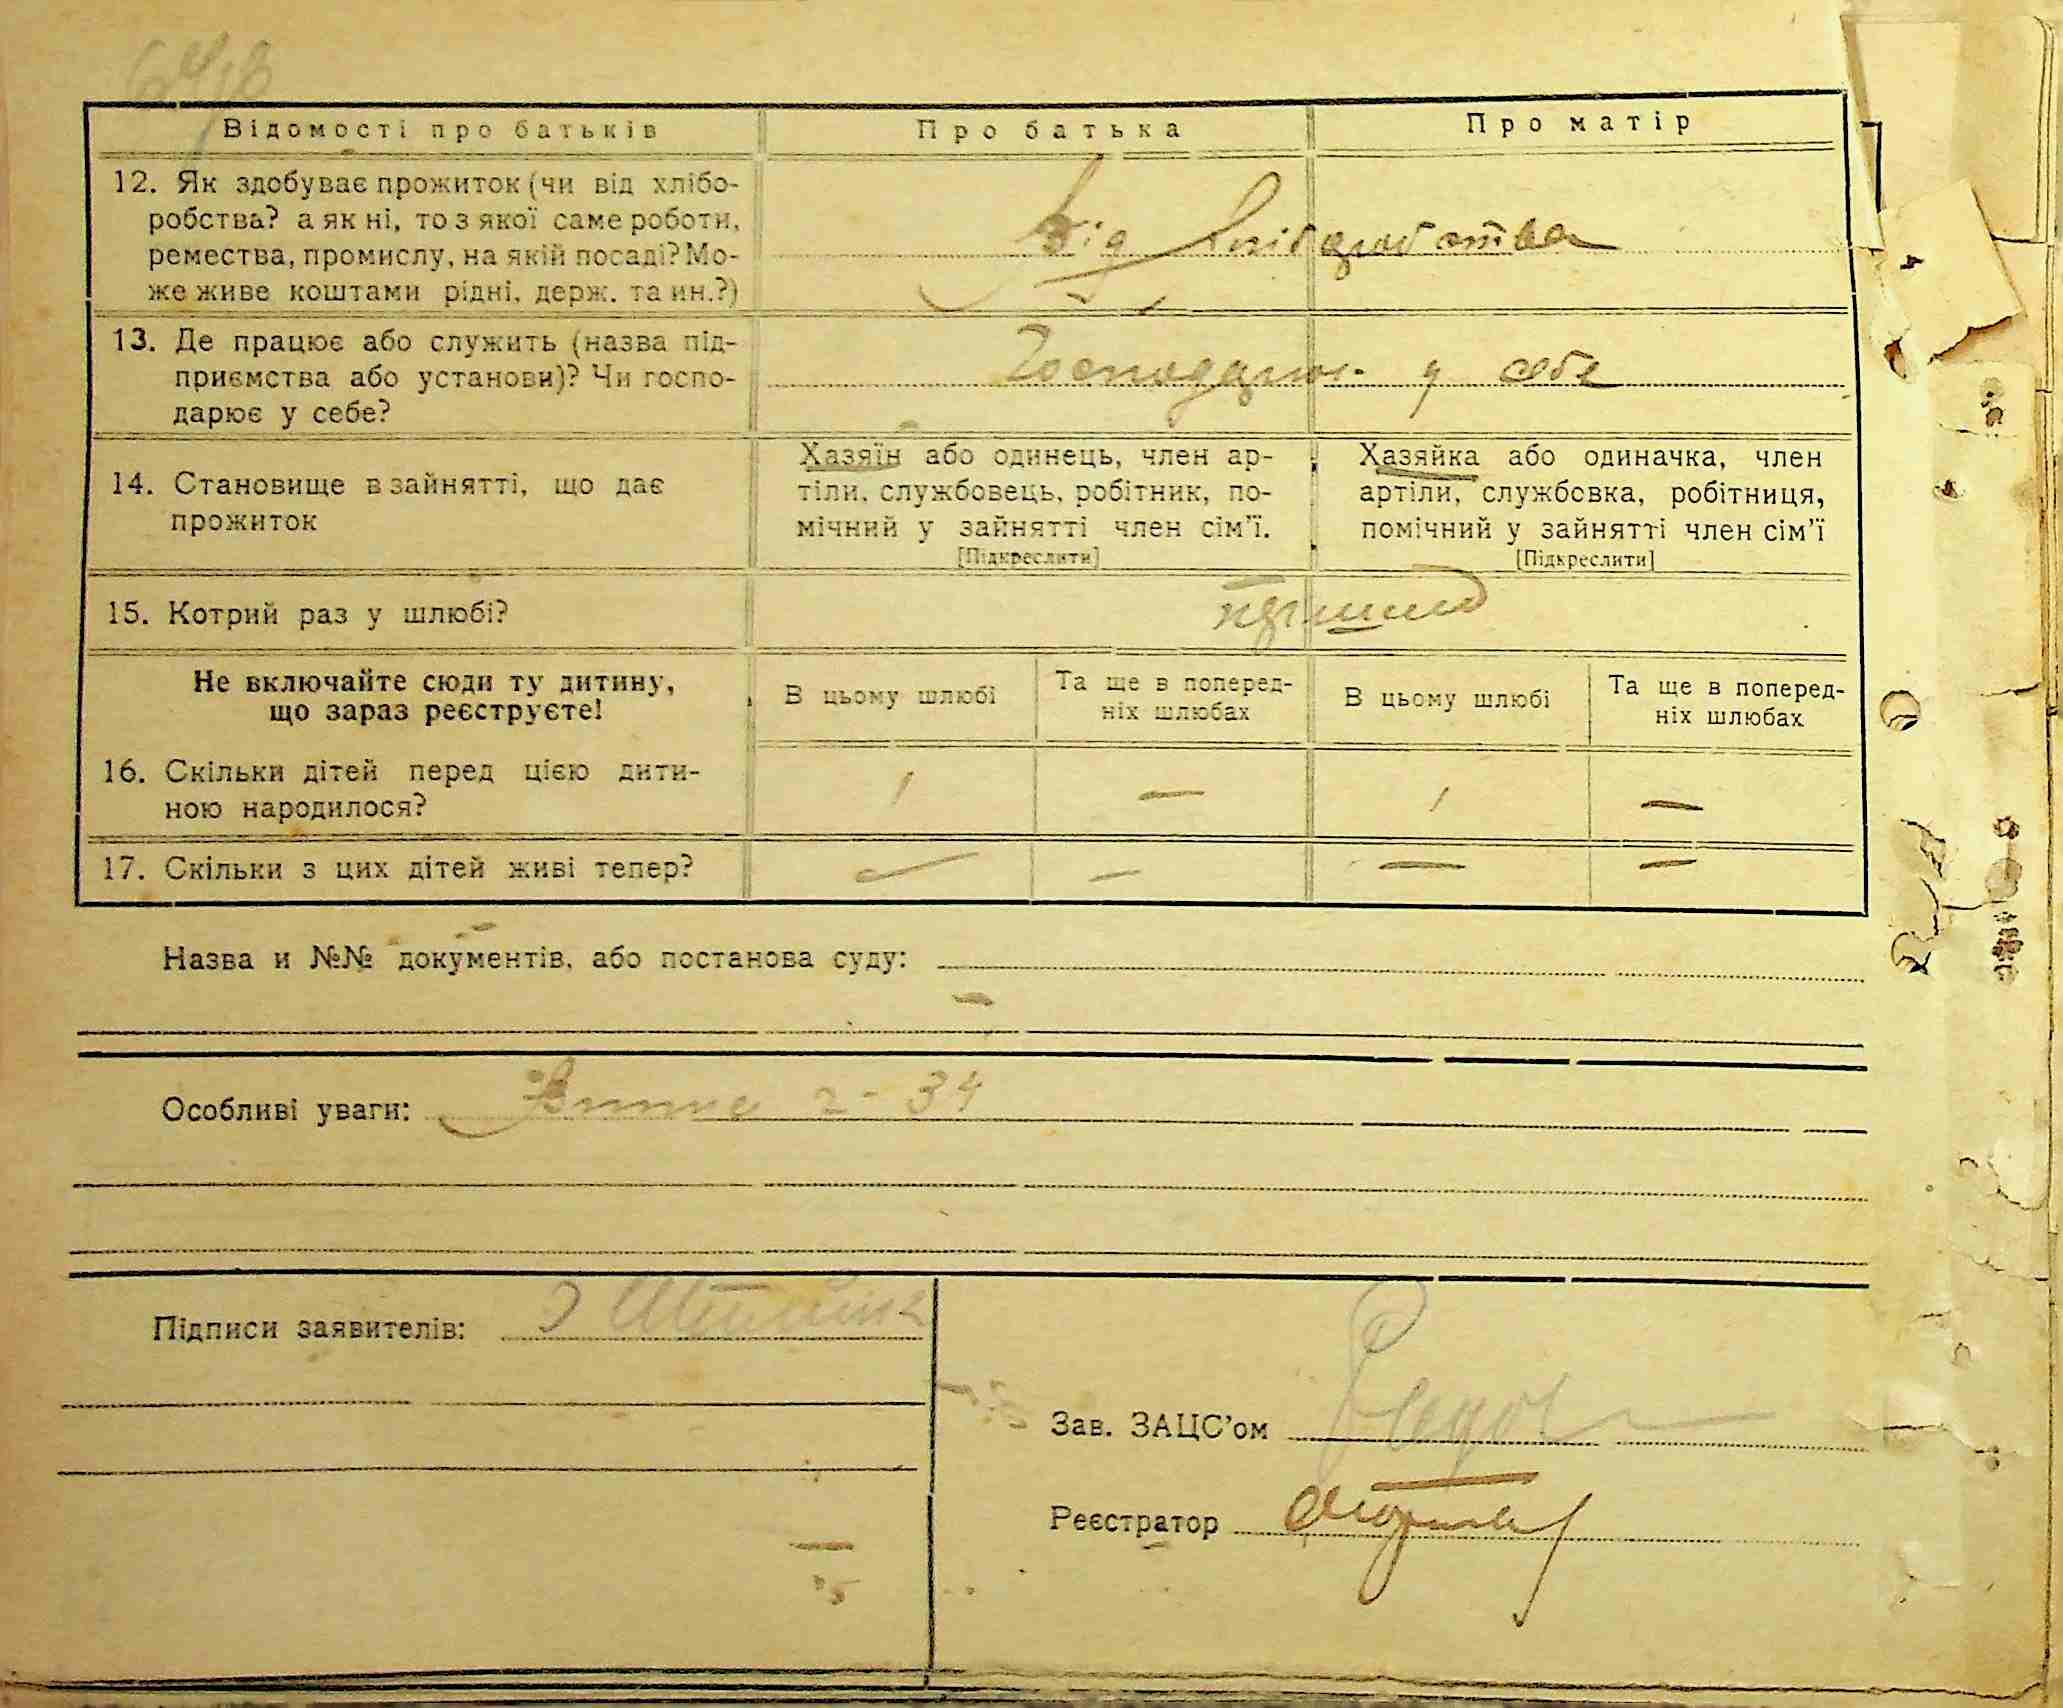 Відомості про батьків Про батька Про матір
12. Як здобуває прожиток (чи від хлібо-
робства? а як ні, то з якої саме роботи,
ремества, промислу, на якій посаді? Мо-
же живе коштами рідні, держ. та ин.?)
Від хліборобства
13. Де працює або служить (назва під-
приємства або установи)? Чи госпо-
дарює у себе?
Господарює у себе
14. Становище в зайнятті, що дає
прожиток
Хазяїн або одинець, член ар-
тіли, службовець, робітник, по-
мічний у зайнятті член сім'ї.
[Підкреслити]
Хазяйка або одиначка, член
артіли, службовка, робітниця,
помічний у зайнятті член сім'ї
[Підкреслити]
15. Котрий раз у шлюбі?
Не включайте сюди ту дитину,
що зараз реєструєте!
В цьому шлюбі
Та ще в поперед-
ніх шлюбах
В цьому шлюбі
Та ще в поперед-
ніх шлюбах
16. Скільки дітей перед цією дити-
ною народилося?
1 — 1 —
17. Скільки з цих дітей живі тепер?
— — — —
Назва и №№ документів, або постанова суду:
Особливі уваги: 2 - 34
Підписи заявителів:
Зав. ЗАЦС'ом
Реєстратор